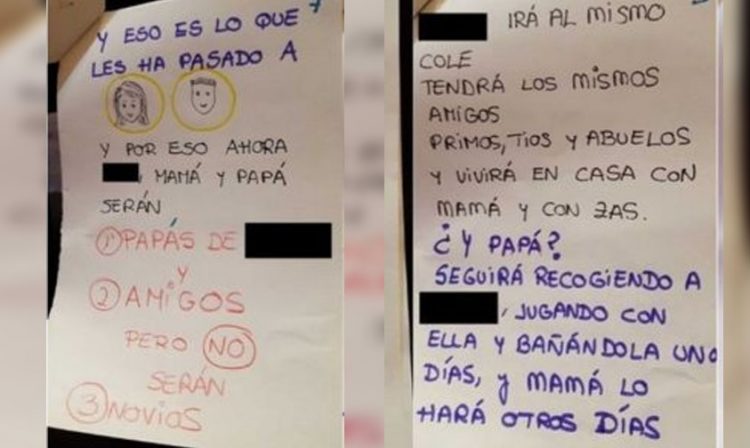 Y ESO ES LO QUE
LES HA PASADO A
Y POR ESO AHORA
, MAMÁ Y PAPÁ
SERÁN
① PAPÁS DE
Y
② AMIGOS
PERO NO
SERÁN
③ NOVIOS
IRÁ AL MISMO
COLE
TENDRÁ LOS MISMOS
AMIGOS
PRIMOS, TIOS Y ABUELOS
Y VIVIRÁ EN CASA CON
MAMÁ Y CON ZAS.
¿Y PAPÁ?
SEGUIRÁ RECOGIENDO A
, JUGANDO CON
ELLA Y BAÑÁNDOLA UNO
DÍAS, Y MAMÁ LO
HARÁ OTROS DÍAS